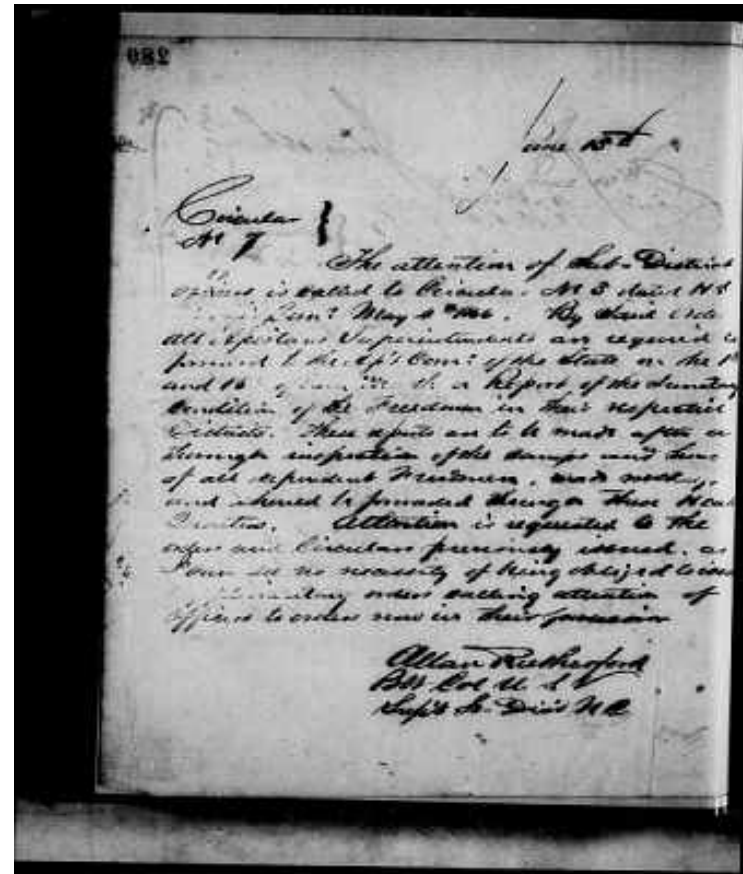 280
June 15th
Circular
No 7
The attention of Sub-District
officers is called to Circular No 3 dated Hd
May 4th 1866. By said order
all Assistant Superintendents are required to
forward to the Ass't Com'r of the State on the 1st
and 15 of a Report of the Sanitary
Condition of the Freedmen in their respective
Districts. These reports are to be made after a
thorough inspection of the camps and
of all dependent Freedmen,
and should be forwarded through these Head
Quarters. Attention is requested to the
orders and Circulars previously issued, as
I can see no necessity of being obliged to issue
orders calling attention of
Officers to orders now in their possession
Allan Rutherford
Bvt Col U. S. V
Sup't So. Dist N C